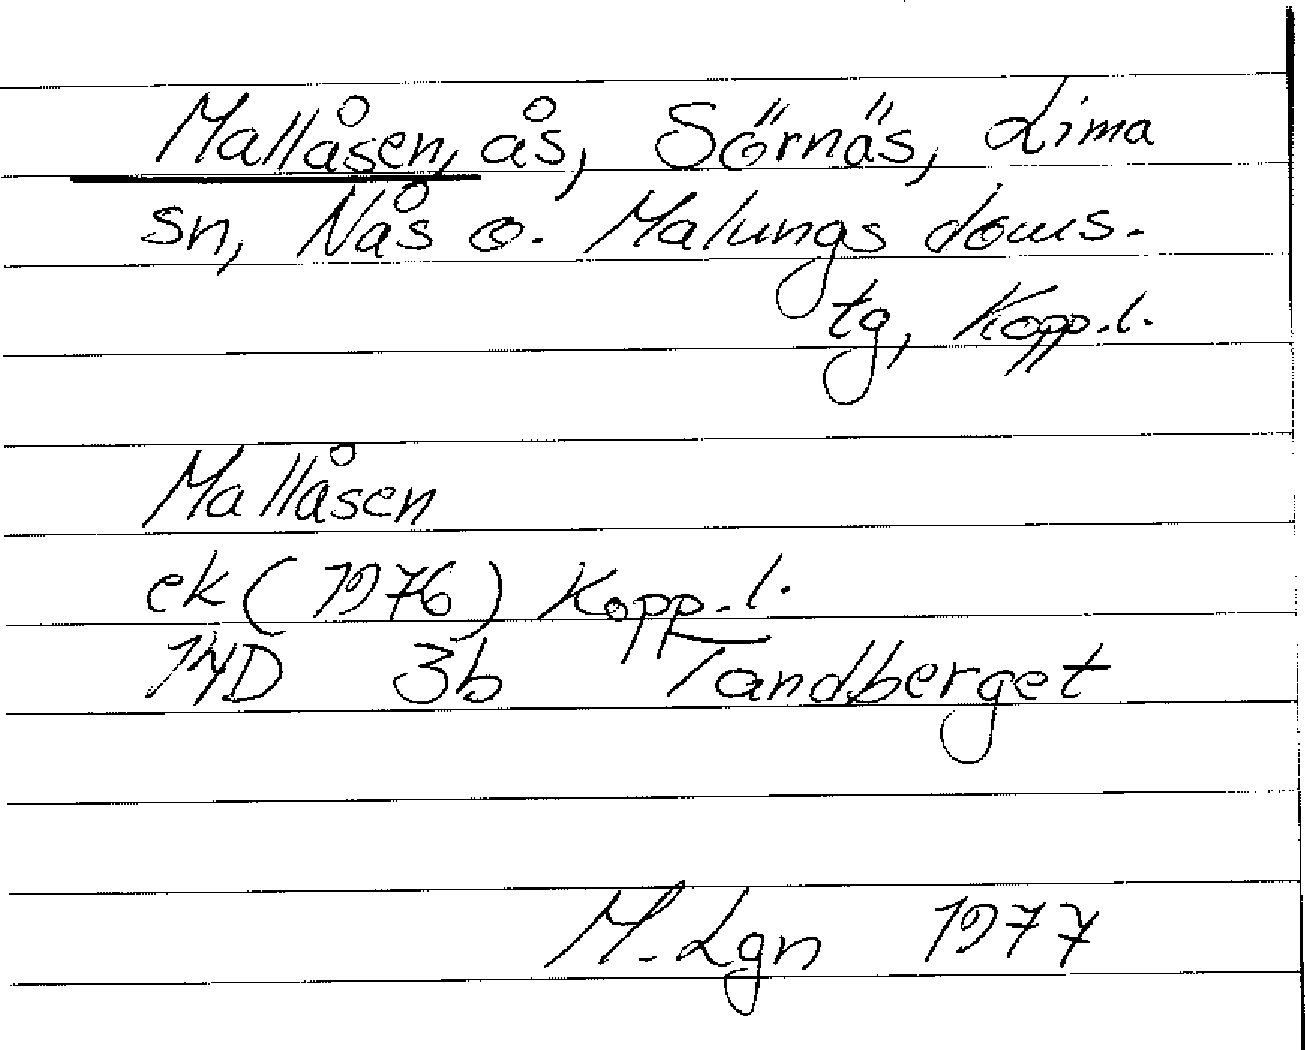 Mallåsen, ås, Sörnäs, Lima
sn, Nås o. Malungs doms.
tg, Kopp.l.
Mallåsen
ek (1976) Kopp.l.
14D 3b Tandberget
M. Lgn 1977